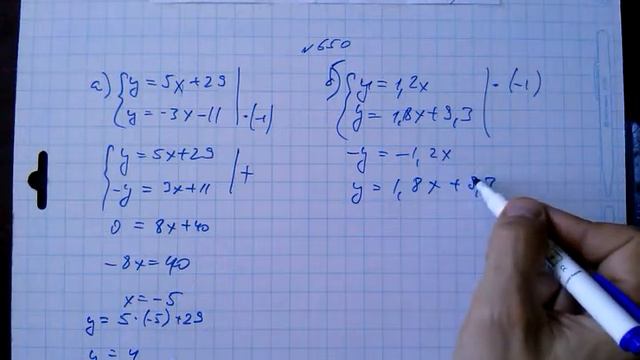 №650
а) { y = 5x + 29
y = -3x - 11 | · (-1)
{ y = 5x + 29
-y = 3x + 11 | +
0 = 8x + 40
-8x = 40
x = -5
y = 5 · (-5) + 29
y = 4
б) { y = 1,2x | · (-1)
y = 1,8x + 9,3
-y = -1,2x
y = 1,8x + 9,3